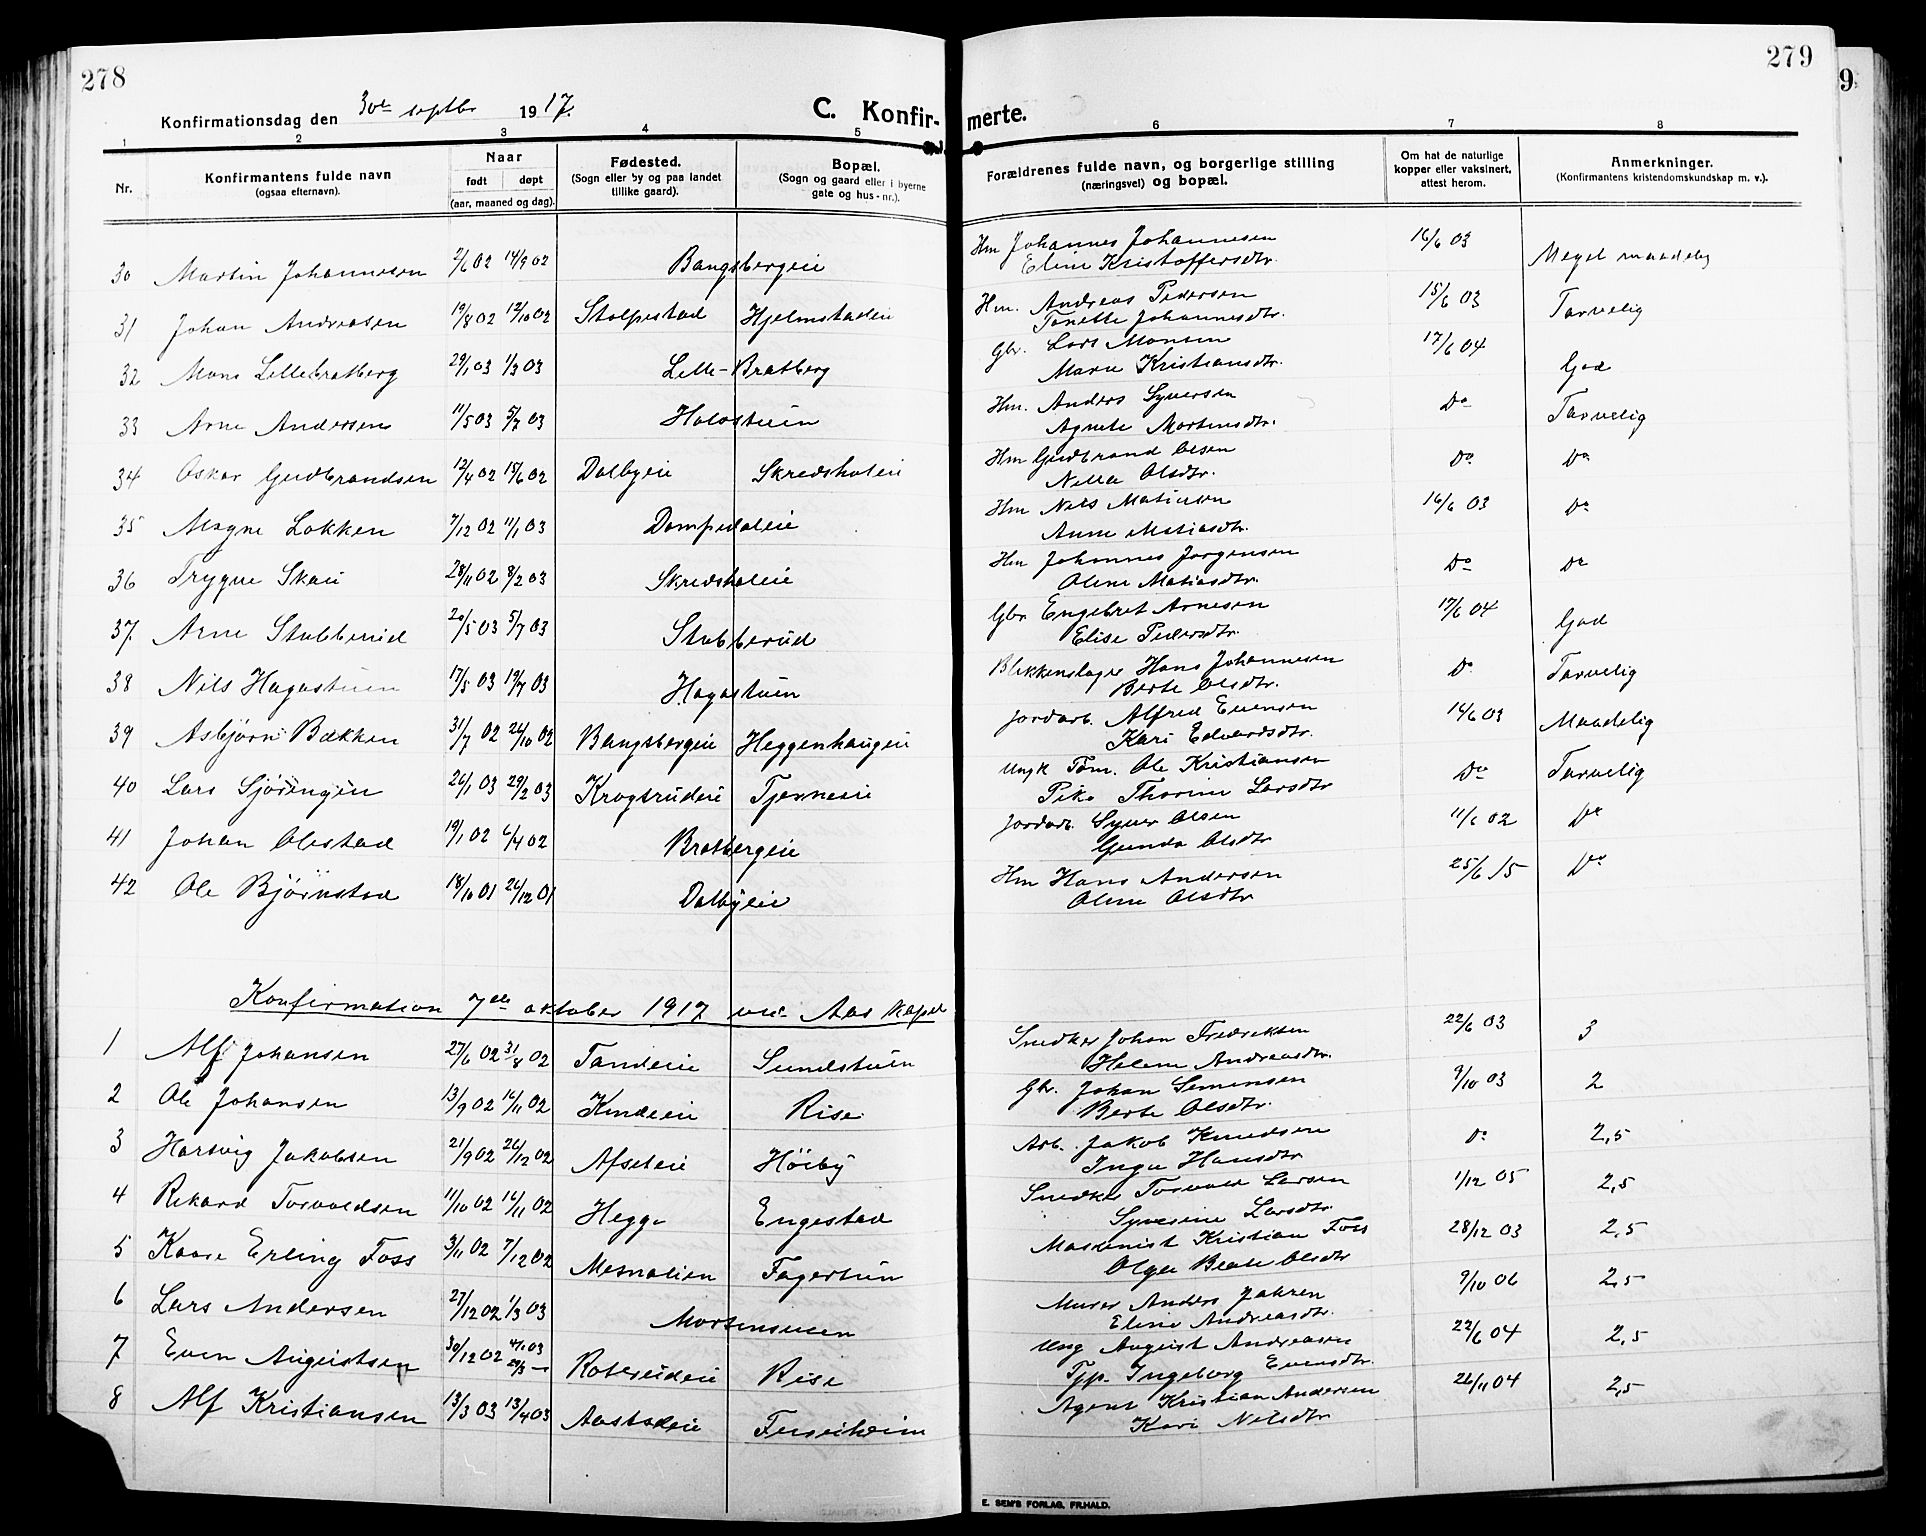 278
279
9
Konfirmationsdag den 30te septbr 1917.
C. Konfir-
merte.
1 2 3 4 5 6 7 8
Nr.
Konfirmantens fulde navn
(ogsaa efternavn).
Naar
født døpt
(aar, maaned og dag).
Fødested.
(Sogn eller by og paa landet
tillike gaard).
Bopæl.
(Sogn og gaard eller i byerne
gate og hus-nr.).
Forældrenes fulde navn, og borgerlige stilling
(næringsvei) og bopæl.
Om hat de naturlige
kopper eller vaksinert,
attest herom.
Anmerkninger.
(Konfirmantens kristendomskundskap m. v.).
30 Martin Johannesen 2/6 02 14/9 02 Bangsbergeie Hm Johannes Johannesen 16/6 03 Meget maadelig
Eline Kristoffersdtr.
31 Johan Andreasen 19/8 02 12/10 02 Stolpestad Hjelmstadeie Hm. Andreas Pedersen 15/6 03 Tarvelig
Tonette Johannesdtr.
32 Mons Lillebratberg 29/1 03 1/3 03 Lille-Bratberg Gbr. Lars Monsen 17/6 04 God
Marie Kristiansdtr.
33 Arne Andersen 11/5 03 5/7 03 Holostuen Hm. Anders Syversen Do Tarvelig
Agnete Mortensdtr.
34 Oskar Gudbrandsen 12/4 02 15/6 02 Dalbyeie Skredsholeie Hm Gudbrand Olsen Do Do
Nella Olsdtr.
35 Magne Løkken 7/12 02 11/1 03 Dompedaleie Hm Nils Matiesen 16/6 03 Do
Anne Matiasdtr.
36 Trygve Skau 28/11 02 8/2 03 Skredsholeie Hm Johannes Jørgensen Do Do
Oline Matiasdtr.
37. Arne Stubberud 20/5 03 5/7 03 Stubberud Gbr Engebret Arnesen 17/6 04 God
Elise Pedersdtr.
38 Nils Hagastuen 17/5 03 19/7 03 Hagastuen Blikkenslager Hans Johannesen Do Tarvelig
Berte Olsdtr.
39 Asbjørn Bækken 31/7 02 26/10 02 Bangsbergeie Heggenhaugen Jordarb. Alfred Evensen 14/6 03 Maadelig
Kari Edvardsdtr.
40 Lars Sjøsengen 26/1 03 29/2 03 Krogsrudeie Tjerneseie Ungk Tøm. Ole Kristiansen Do Tarvelig
Pike Thorine Larsdtr
41 Johan Olestad 19/1 02 6/4 02 Bratbergeie Jordarb. Syver Olsen 11/6 02 Do
Gunda Olsdtr
42 Ole Bjørnstad 18/10 01 26/12 01 Dalbyeie Hm Hans Andersen 25/6 15 Do
Oline Olsdtr
Konfirmation 7de oktober 1917 ved Aas Kapel
1 Alf Johansen 27/6 02 31/8 02 Tandeie Sundstuen Snedker Johan Fredriksen 22/6 03 3
Helene Andreasdtr.
2 Ole Johansen 13/9 02 16/11 02 Kindeie Rise Gbr. Johan Simensen 9/10 03 2
Berte Olsdtr.
3 Hartvig Jakobsen 21/9 02 26/12 02 Afseteie Höiby Arb. Jakob Knudsen Do 2,5
Inga Hansdtr
4 Rikard Torvaldsen 11/10 02 16/11 02 Hegge Engestad Snedker Torvald Larsen 1/12 05 2,5
Syverine Larsdtr
5 Kaare Erling Foss 3/11 02 7/12 02 Mesnalien Fagertun Maskinist Kristian Foss 28/12 03 2,5
Olga Beate Olsdtr
6 Lars Andersen 27/12 02 1/3 03 Mortenstuen Murer Anders Jahren 9/10 06 2,5
Eline Andreasdtr.
7 Even Augustsen 30/12 02 4/1 03 29/3 — Roterudeie Rise Ung August Andreasen 22/6 04 2,5
Tjp. Ingeborg Evensdtr.
8 Alf Kristiansen 13/3 03 13/4 03 Aastadeie Furuheim Agent Kristian Andersen 26/11 04 2,5
Kari Nilsdtr
E. SEM'S FORLAG, FR.HALD.